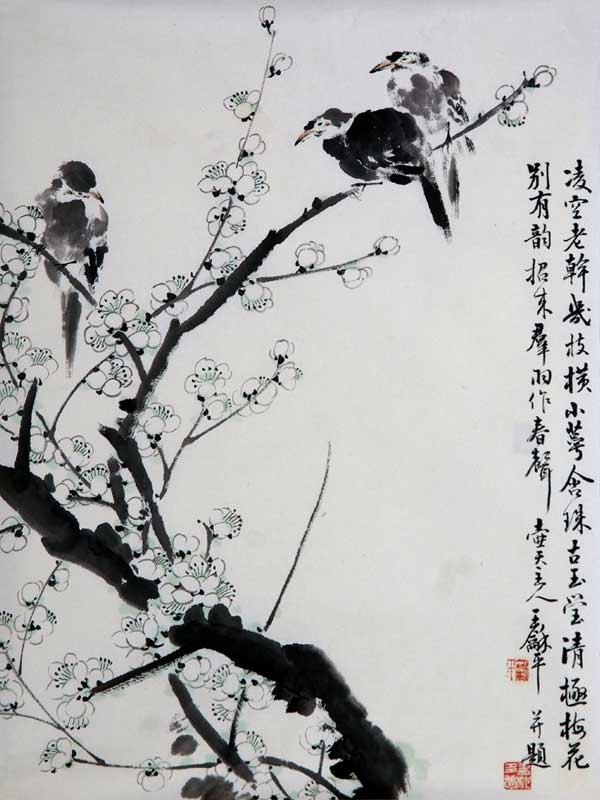 凌空老幹幾枝横小萼含珠古玉莹清極梅花
别有韻招来羣羽作春聲 壺天主人 王龢平 并題